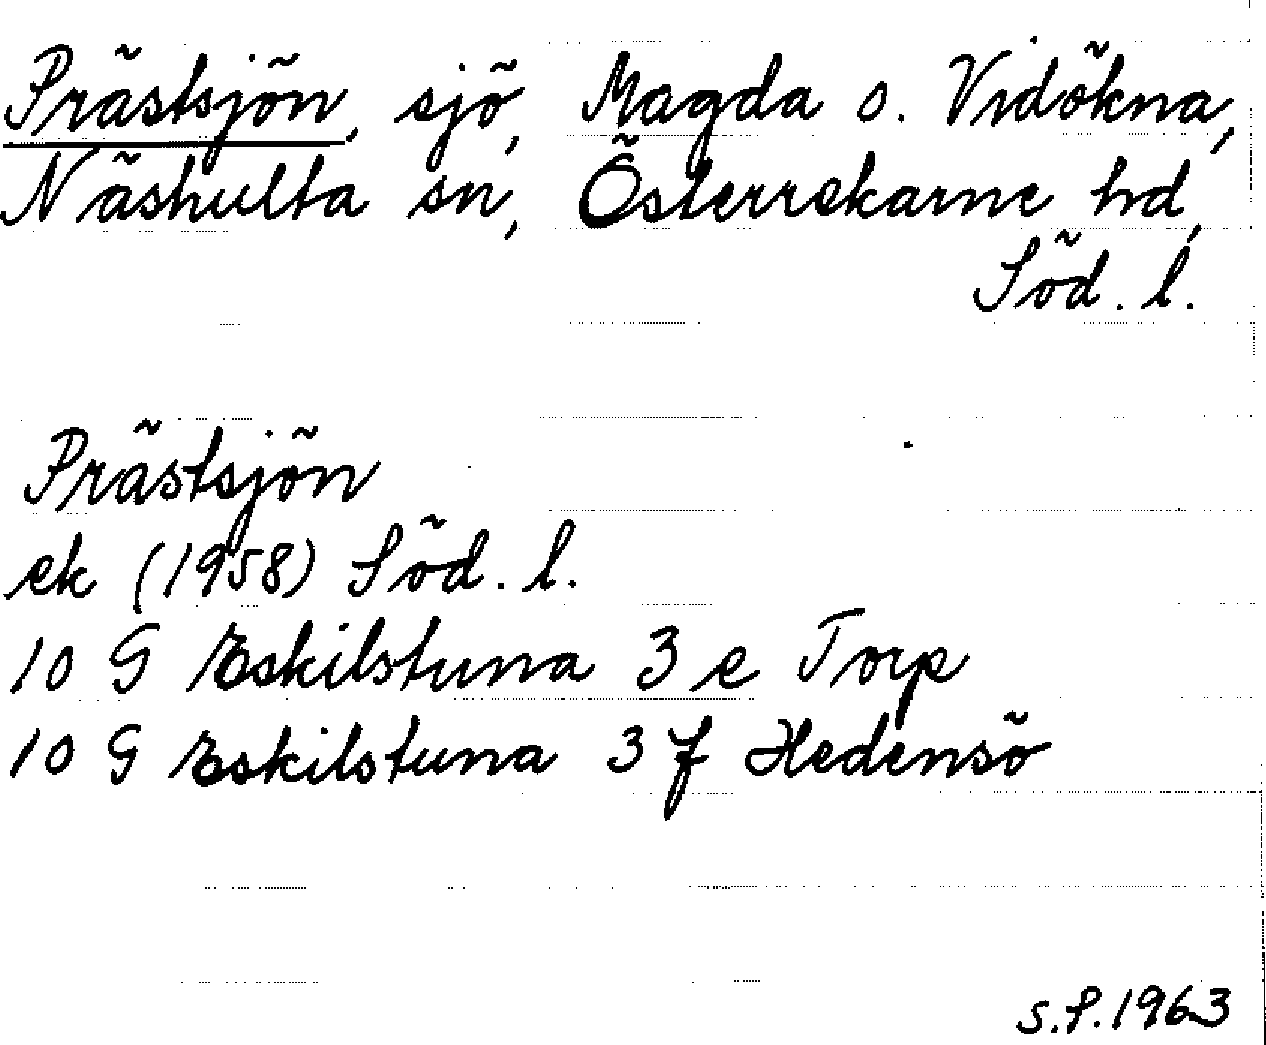 Prästsjön, sjö, Magda o. Vidökna,
Näshulta sn, Österrekarne hd,
Söd. l.
Prästsjön
ek (1958) Söd. l.
10 G Eskilstuna 3 e Torp
10 G Eskilstuna 3 f Hedensö
S.P. 1963